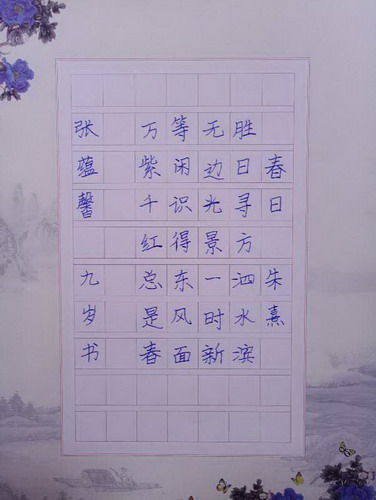 春日 朱熹
胜日寻方泗水滨
无边光景一时新
等闲识得东风面
万紫千红总是春
张蕴馨 九岁书